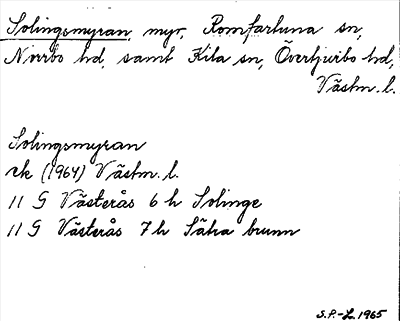 Solingsmyran, myr, Romfartuna sn,
Norrbo hd, samt Kila sn, Övertjurbo hd,
Västm. l.
Solingsmyran
rk (1964) Västm. l.
11 G Västerås 6 h Solinge
11 G Västerås 7 h Sätra brunn
S.P.-L. 1965